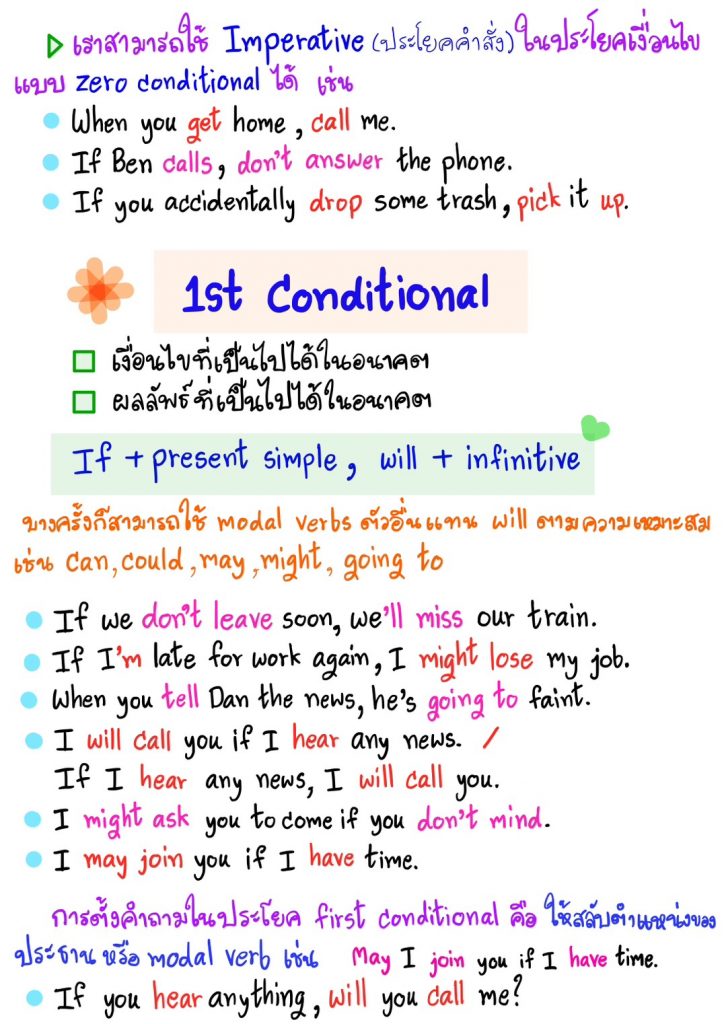 เราสามารถใช้ Imperative (ประโยคคำสั่ง) ในประโยคเงื่อนไข
แบบ zero conditional ได้ เช่น
When you get home, call me.
If Ben calls, don't answer the phone.
If you accidentally drop some trash, pick it up.
1st Conditional
เงื่อนไขที่เป็นไปได้ในอนาคต
ผลลัพธ์ที่เป็นไปได้ในอนาคต
If + present simple, will + infinitive
บางครั้งก็สามารถใช้ modal verbs ตัวอื่นแทน will ตามความเหมาะสม
เช่น can, could, may, might, going to
If we don't leave soon, we'll miss our train.
If I'm late for work again, I might lose my job.
When you tell Dan the news, he's going to faint.
I will call you if I hear any news. /
If I hear any news, I will call you.
I might ask you to come if you don't mind.
I may join you if I have time.
การตั้งคำถามในประโยค first conditional คือ ให้สลับตำแหน่งของ
ประธาน หรือ modal verb เช่น May I join you if I have time.
If you hear anything, will you call me?